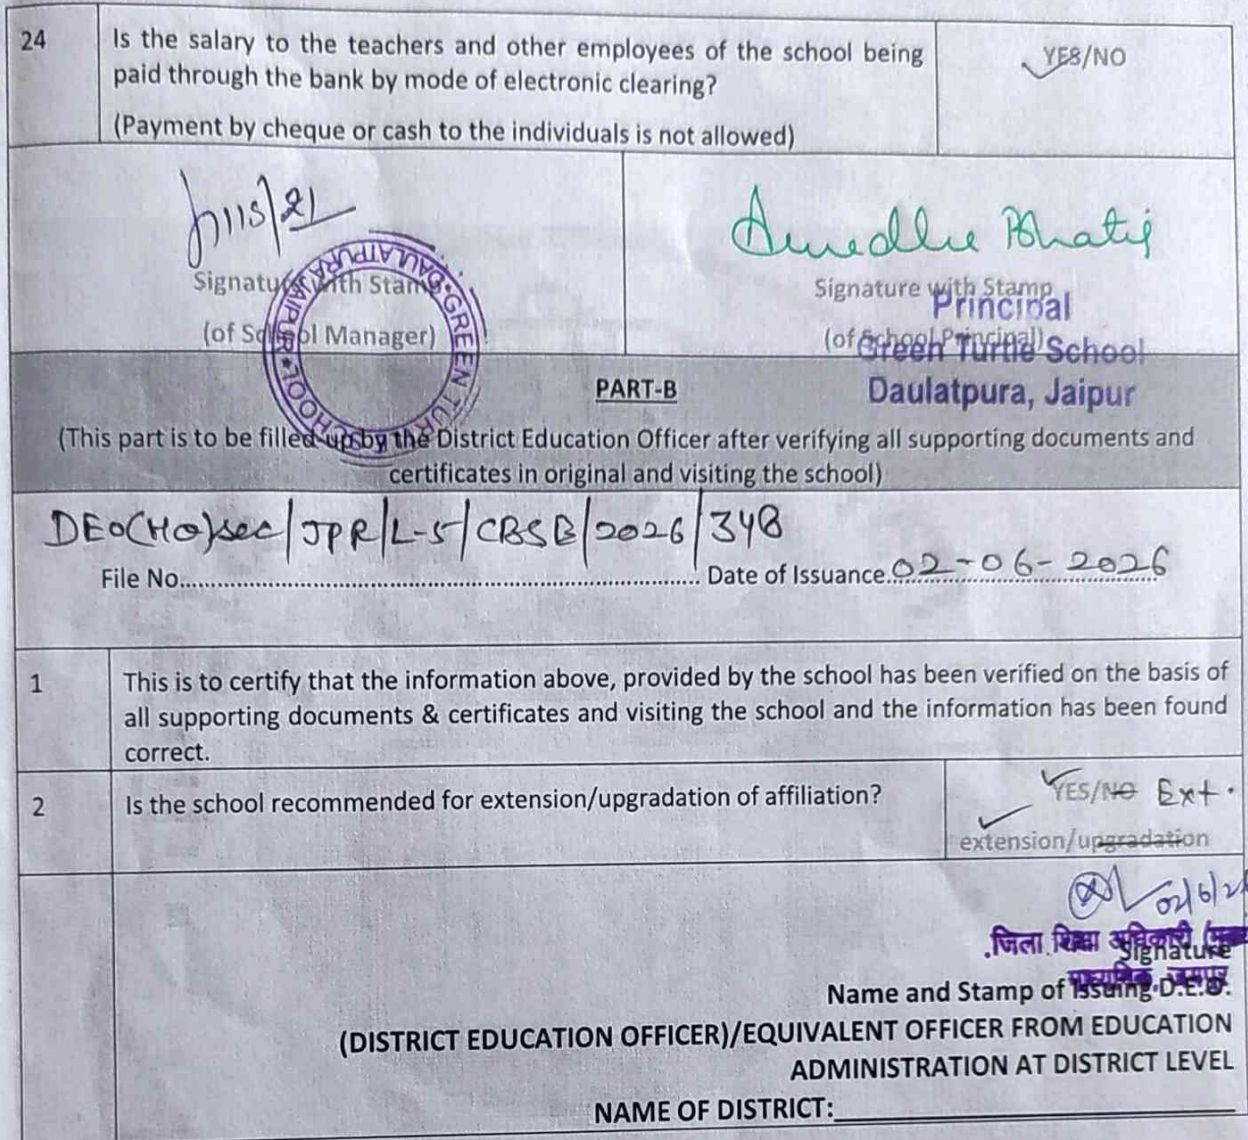 24
Is the salary to the teachers and other employees of the school being
paid through the bank by mode of electronic clearing?
(Payment by cheque or cash to the individuals is not allowed)
YES/NO
Signature with Stamp
(of School Manager)
DAULATPURA • GREEN TURTLE SCHOOL • JAIPUR
Signature with Stamp
(of School Principal)
Principal
Green Turtle School
Daulatpura, Jaipur
PART-B
(This part is to be filled up by the District Education Officer after verifying all supporting documents and
certificates in original and visiting the school)
DEO(HO)sec/JPR/L-5/CBSB/2026/348
File No.
Date of Issuance. 02-06-2026
1
This is to certify that the information above, provided by the school has been verified on the basis of
all supporting documents & certificates and visiting the school and the information has been found
correct.
2
Is the school recommended for extension/upgradation of affiliation?
YES/NO Ext.
extension/upgradation
जिला शिक्षा अधिकारी
Signature
Name and Stamp of Issuing D.E.O.
(DISTRICT EDUCATION OFFICER)/EQUIVALENT OFFICER FROM EDUCATION
ADMINISTRATION AT DISTRICT LEVEL
NAME OF DISTRICT: